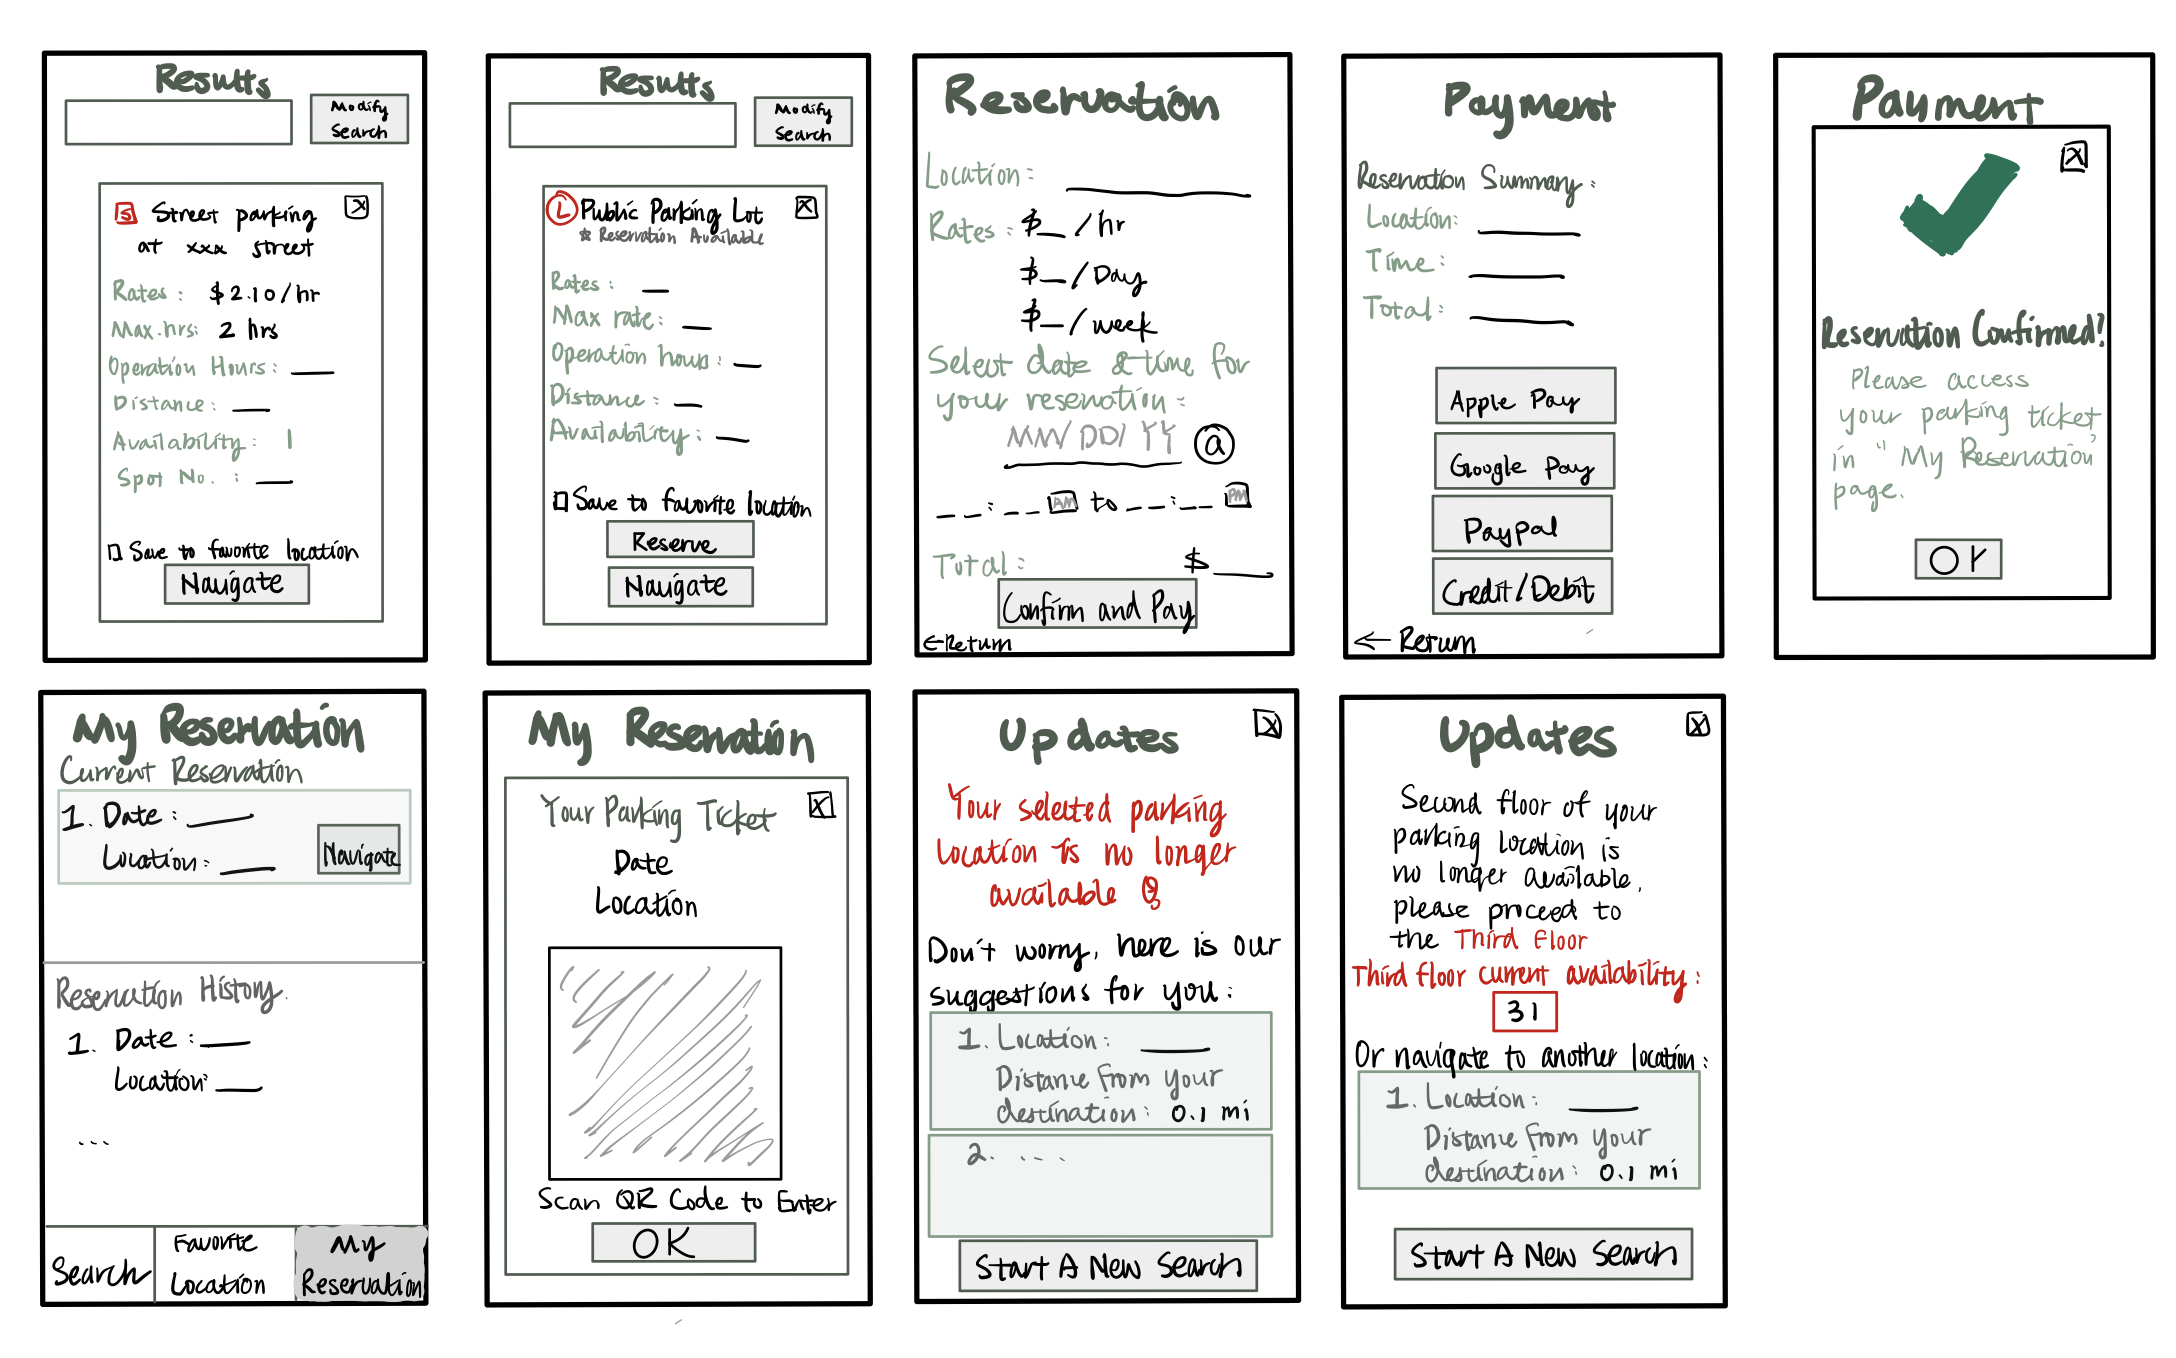 Results
Modify
Search
S Street parking X
at xxx street
Rates: $2.10/hr
Max.hrs: 2 hrs
Operation Hours:
Distance:
Availability: 1
Spot No.:
Save to favorite location
Navigate
Results
Modify
Search
L Public Parking Lot X
☆ Reservation Available
Rates:
Max rate:
Operation hours:
Distance:
Availability:
Save to favorite location
Reserve
Navigate
Reservation
Location:
Rates: $_/hr
$_/Day
$_/week
Select date & time for
your reservation:
MM/DD/YY @
_ _:_ _ AM to _ _:_ _ PM
Total: $___
Confirm and Pay
←Return
Payment
Reservation Summary:
Location:
Time:
Total:
Apple Pay
Google Pay
Paypal
Credit/Debit
← Return
Payment
X
Reservation Confirmed!
Please access
your parking ticket
in "My Reservation"
page.
OK
My Reservation
Current Reservation
1. Date:
Location:
Navigate
Reservation History.
1. Date:
Location:
...
Search
Favorite
Location
My
Reservation
My Reservation
Your Parking Ticket X
Date
Location
Scan QR Code to Enter
OK
Updates X
Your selected parking
location is no longer
available
Don't worry, here is our
suggestions for you:
1. Location:
Distance from your
destination: 0.1 mi
2. ...
Start A New Search
Updates X
Second floor of your
parking location is
no longer available,
please proceed to
the Third Floor
Third floor current availability:
31
Or navigate to another location:
1. Location:
Distance from your
destination: 0.1 mi
Start A New Search